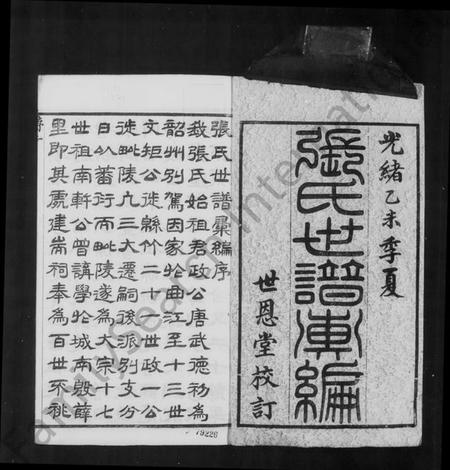 光緒乙未季夏
張氏世譜彙編
世恩堂校訂
張氏世譜彙編序
我張氏始祖君政公唐武德初為
韶州別駕因家於曲江至十三世
文矩公徙緜竹二十一世政一公
徙毗陵九三大遷嗣後派別支分
日以蕃衍而毗陵遂為大宗十七
世祖南軒公曾講學於城南毀薛
里即其處建耑祠奉為百世不祧
79226
FamilySearch International